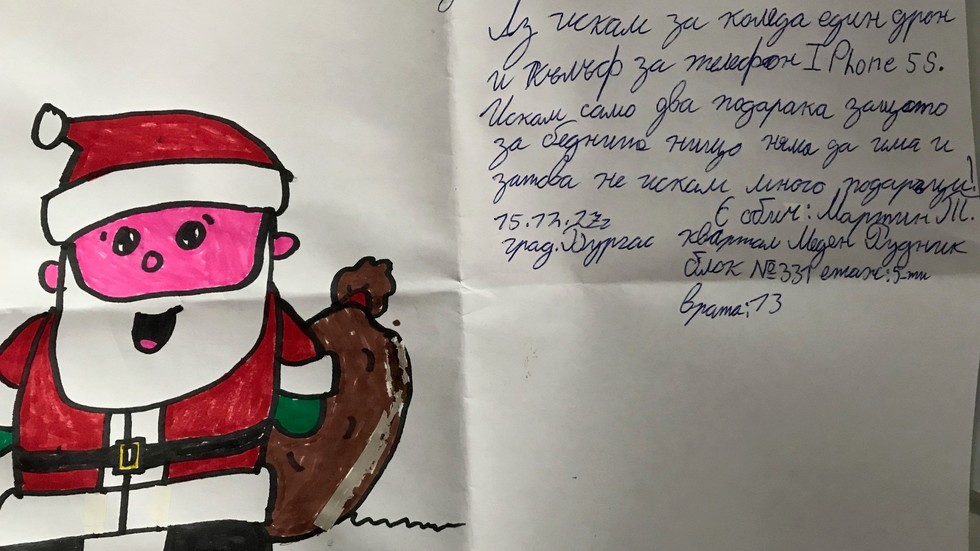 Аз искам за коледа един дрон
и кълъф за телефон I Phone 5S.
Искам само два подарака защото
за беднита нищо няма да има и
затова не искам много подаръци!
15.12. г
С обич: Мартин Т.
град.Бургас квартал Меден Рудник
блок №331 етаж: 5-ти
врата: 13